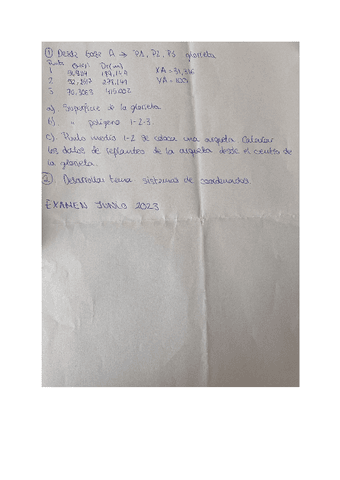 ① Desde base A → P1, P2, P3 glorieta
Punto
1 XA = 51,316
2 YA = 100
3 415.002
a) Superficie de la glorieta
b) " polígono 1-2-3.
c) Punto medio 1-2 se coloca una arqueta. Calcular
los datos de replanteo de la arqueta desde el centro de
la glorieta.
② Desarrollar tema sistemas de coordenadas
EXAMEN JUNIO 2023